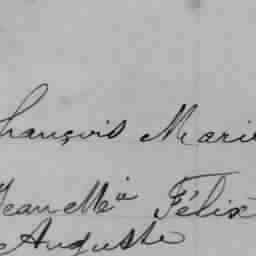 François Marie
Jean Mia Félix
Auguste